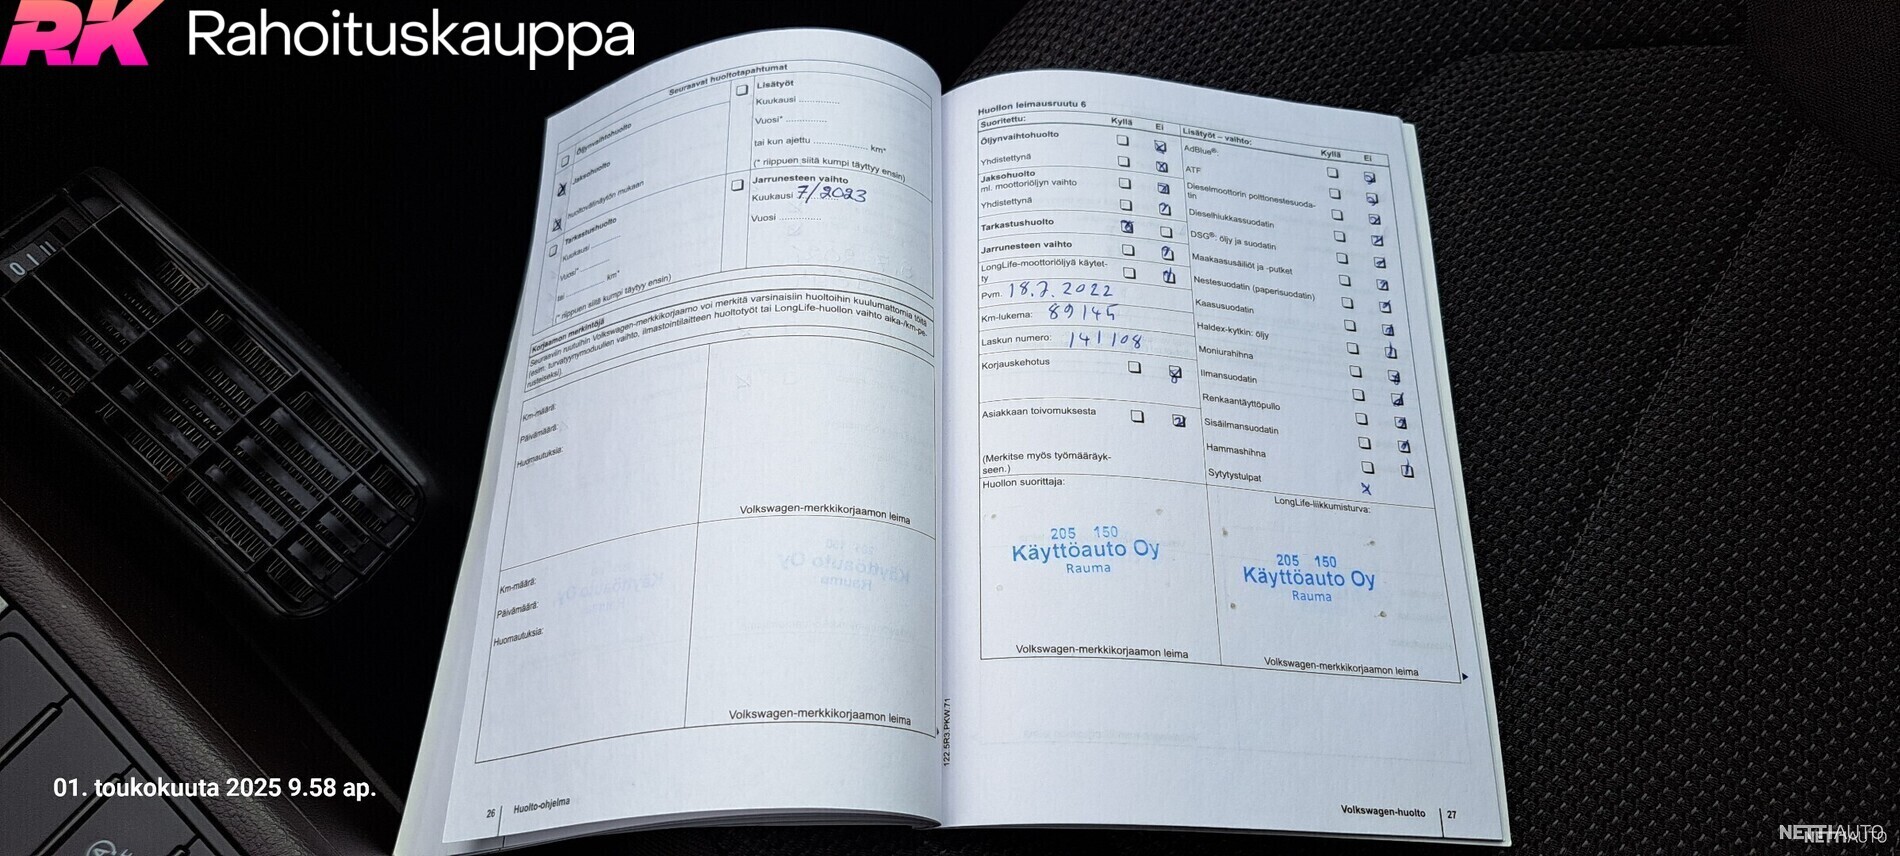 RK Rahoituskauppa
Seuraavat huoltotapahtumat
Öljynvaihtohuolto
Jaksohuolto
huoltovälinäytön mukaan
Tarkastushuolto
Kuukausi
Vuosi*
tai km*
(* riippuen siitä kumpi täytyy ensin)
Lisätyöt
Kuukausi
Vuosi*
tai kun ajettu km*
(* riippuen siitä kumpi täyttyy ensin)
Jarrunesteen vaihto
Kuukausi 7/2023
Vuosi
Korjaamon merkintöjä
Seuraaviin ruutuihin Volkswagen-merkkikorjaamo voi merkitä varsinaisiin huoltoihin kuulumattomia töitä
(esim. turvatyynymoduulien vaihto, ilmastointilaitteen huoltotyöt tai LongLife-huollon vaihto aika-/km-pe-
rusteiseksi).
Km-määrä:
Päivämäärä:
Huomautuksia:
Volkswagen-merkkikorjaamon leima
Km-määrä:
Päivämäärä:
Huomautuksia:
Volkswagen-merkkikorjaamon leima
26 Huolto-ohjelma
122.5R3.PKW.71
Huollon leimausruutu 6
Suoritettu: Kyllä Ei
Öljynvaihtohuolto
Yhdistettynä
Jaksohuolto
ml. moottoriöljyn vaihto
Yhdistettynä
Tarkastushuolto
Jarrunesteen vaihto
LongLife-moottoriöljyä käytet-
ty
Pvm. 18.7.2022
Km-lukema: 89145
Laskun numero: 141108
Korjauskehotus
Asiakkaan toivomuksesta
(Merkitse myös työmääräyk-
seen.)
Huollon suorittaja:
205 150
Käyttöauto Oy
Rauma
Volkswagen-merkkikorjaamon leima
Lisätyöt – vaihto: Kyllä Ei
AdBlue®:
ATF
Dieselmoottorin polttonestesuoda-
tin
Dieselhiukkassuodatin
DSG®: öljy ja suodatin
Maakaasusäiliöt ja -putket
Nestesuodatin (paperisuodatin)
Kaasusuodatin
Haldex-kytkin: öljy
Moniurahihna
Ilmansuodatin
Renkaantäyttöpullo
Sisäilmansuodatin
Hammashihna
Sytytystulpat
x
LongLife-liikkumisturva:
205 150
Käyttöauto Oy
Rauma
Volkswagen-merkkikorjaamon leima
Volkswagen-huolto 27
01. toukokuuta 2025 9.58 ap.
NETTIAUTO
NETTIAUTO